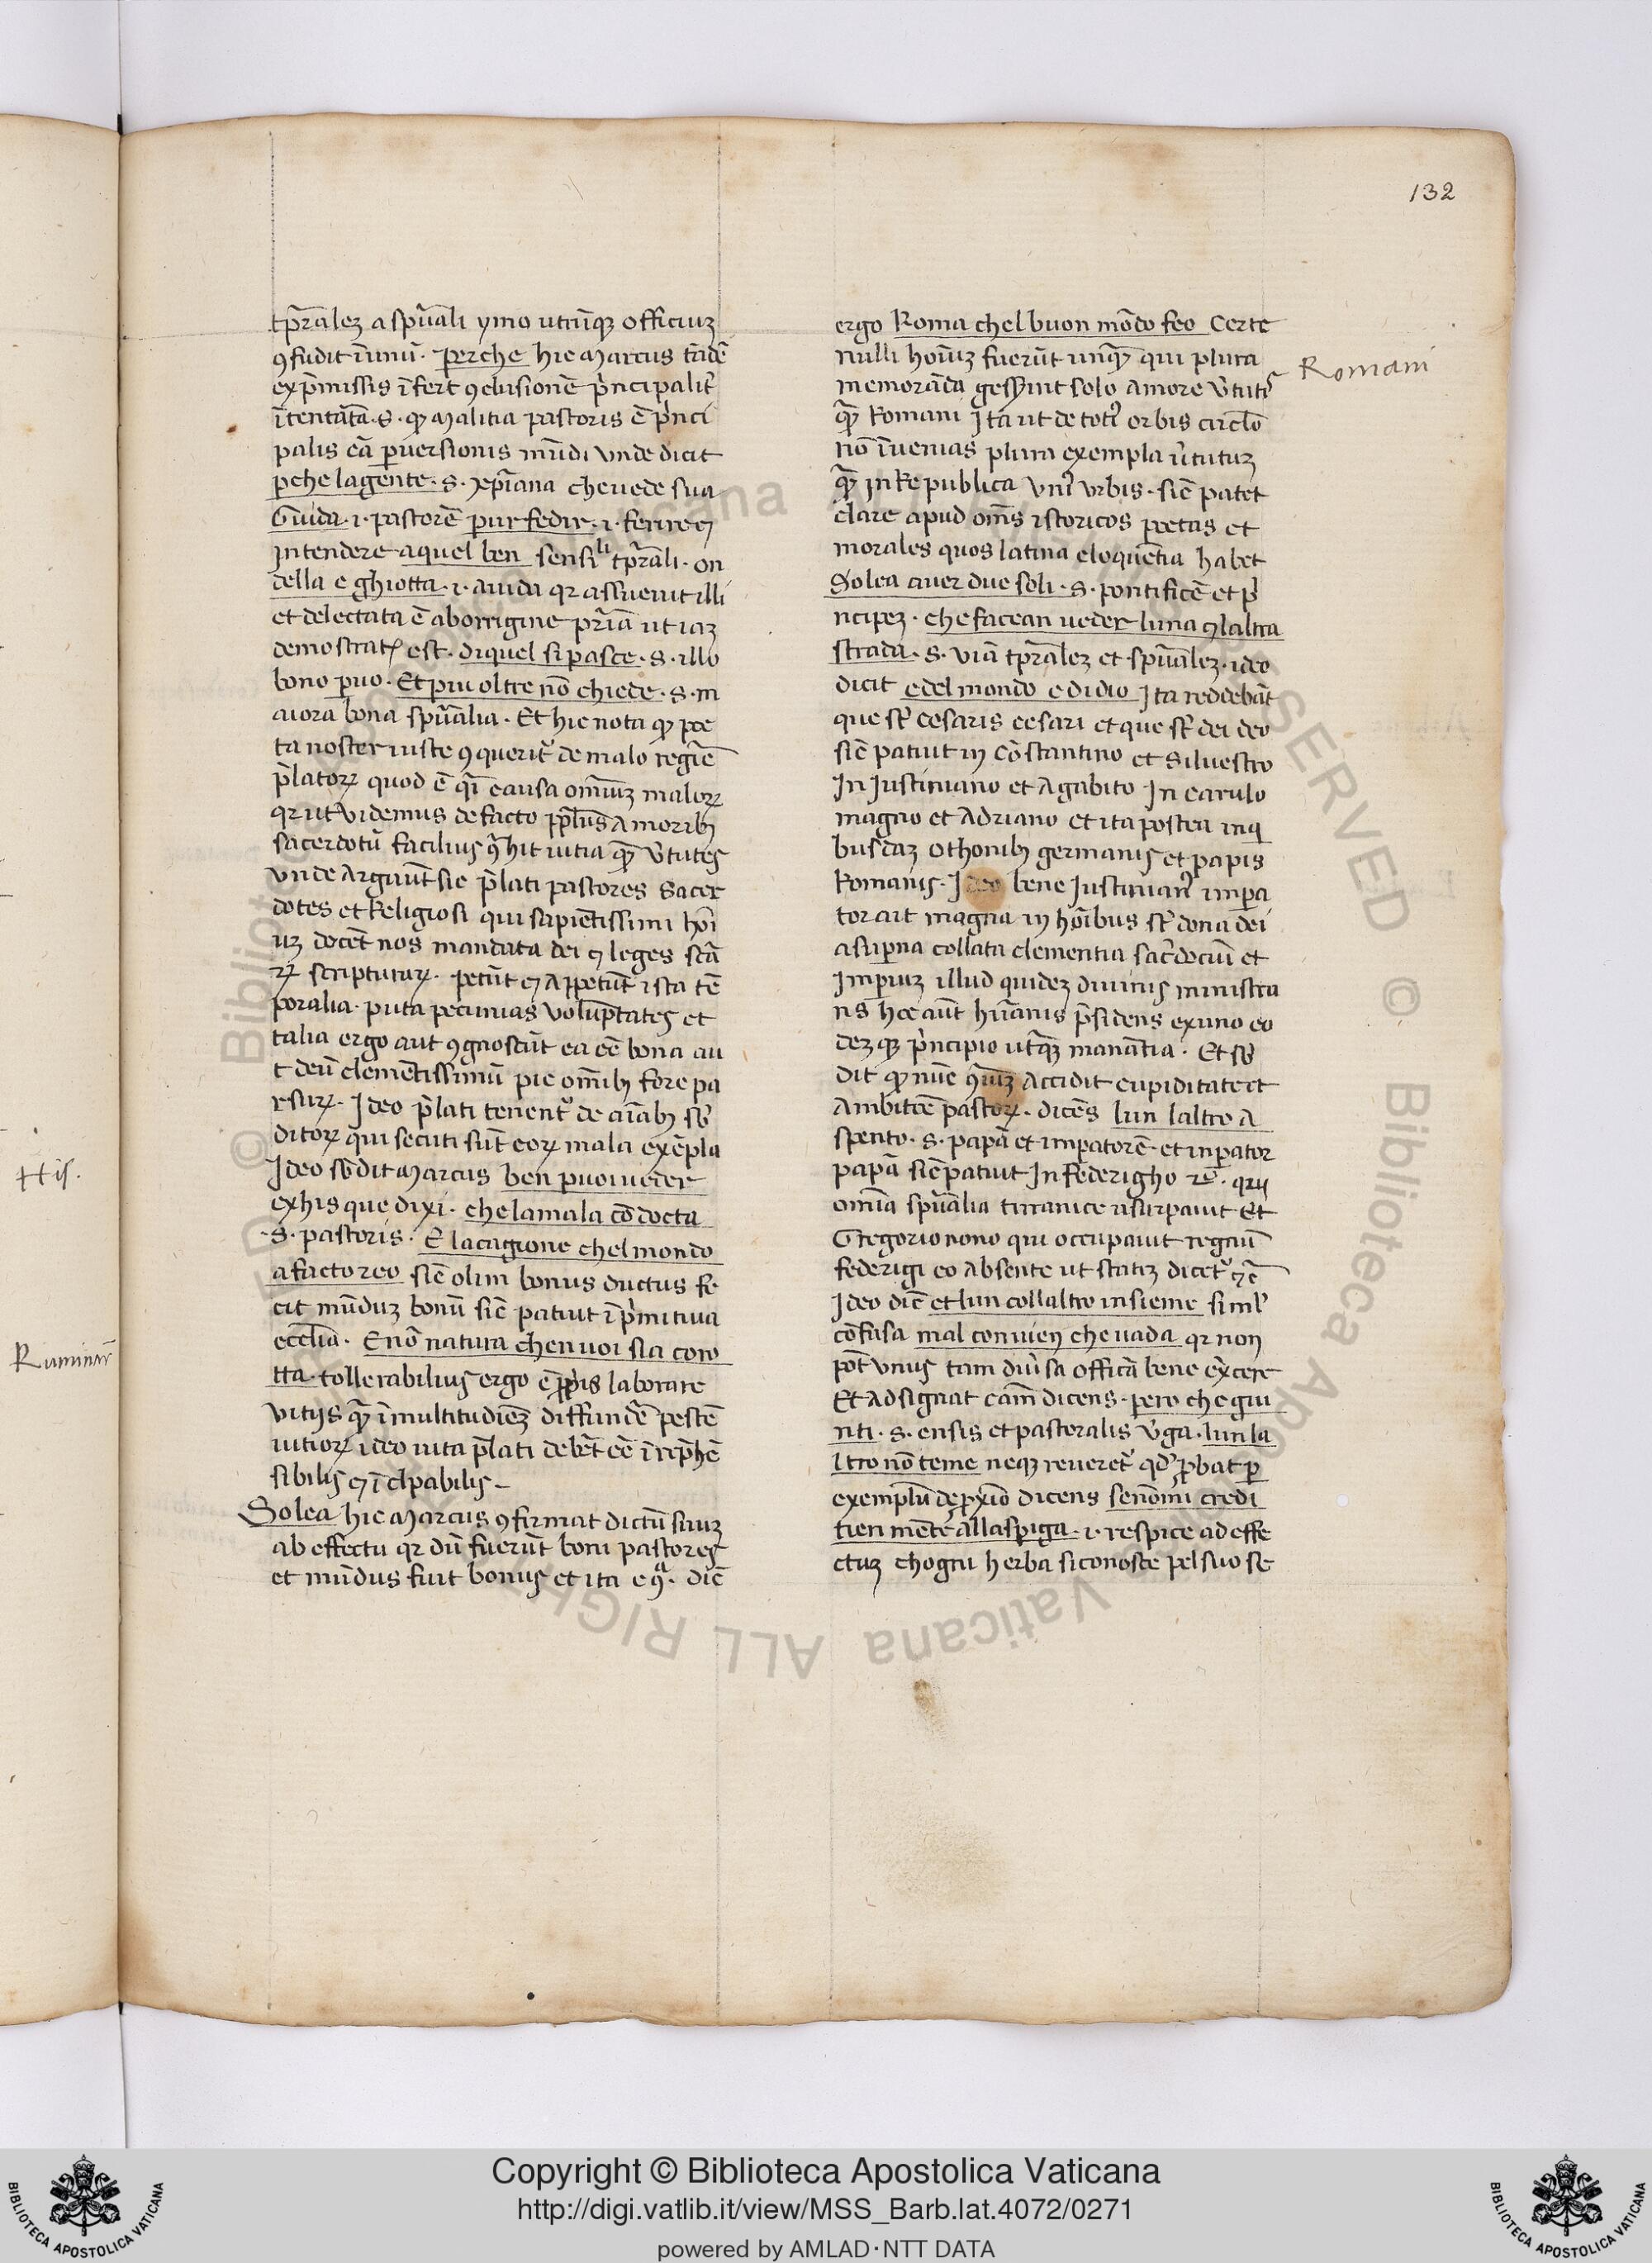 132
tp̄ralez a spūali ymo utrūqꝫ officiuz
ꝯfudit ī unū · perche hic Marcus tādē
ex p̄missis īfert ꝯclusionē p̄ncipalit̄
ītentātā · s · ꝙ malitia pastoris ē p̄nci
palis cā pꝑuersionis mūdi unde dicit
ꝑche la gente · s · xp̄iana che uede sua
Guida · i · pastorē pur fedir · i · ferire ⁊
intendere a quel ben sensili tp̄rali · on
della e ghiotta · i · auida qr assueuit illi
et delectata ē ab orrigine p̄ria ut iaz
demostratꝰ est · di quel si pasce · s · illo
bono paruo · Et piu oltre nō chiede · s · m
aiora bona spūalia · Et hic nota ꝙ poe
ta noster iuste ꝯquerit̄ de malo regīe
p̄latoꝝ quod ē q̄i causa omīuz maloꝝ
qr ut videmus de facto pp̄lus a moribꝫ
sacerdotū facilius ꝯ̄hit uitia ꝙ̄ v̄tutes
unde arguūt sic p̄lati pastores sacer
dotes et Religiosi qui sapiētissimi hoī
uz docēt nos mandata dei ⁊ leges scā
ꝝ scripturaꝝ · petūt ⁊ appetūt ista tē
poralia · puta pecunias voluptates et
talia ergo aut ꝯgnoscūt ea eē bona au
t deū clementissimū pie omībꝫ fore pa
rsuꝝ · Ideo p̄lati tenent̄ de aīabꝫ sb̄
ditoꝝ qui secuti sūt eoꝝ mala exēpla
Ideo sb̄dit Marcus ben puoi ueder
ex his que dixi · che la mala cōdocta
· s · pastoris · E la cagione chel mondo
a facto reo sic̄ olim bonus ductus fe
cit mūduz bonū sic̄ patuit ī p̄mitiua
ecclīa · E nō natura chen uoi sia coro
tta · tollerabilius ergo ē ꝓp̄is laborare
vitijs ꝙ̄ ī multitudiēz diffundē pestē
uitioꝝ ideo uita p̄lati debēt eē ī rep̄hē
sibilis ⁊ ī clpabilis –
Solea hic Marcus ꝯfirmat dictū suuz
ab effectu qr dū fuerūt boni pastores
et mūdus fuit bonus et ita e ꝯª · dic̄
ergo Roma chel buon mōdo feo Certe
nulli hoīuz fuerūt unꝙ̄ qui plura
memorāda gesserint solo amore v̄tutꝭ
ꝙ̄ Romani Ita ut de totꝰ orbis circl̄o
nō īuenias plura exempla v̄tutuz
ꝙ̄ in Re publica unꝰ vrbis · sic̄ patet
clare apud om̄s istoricos poetas et
morales quos latina eloquētia habet
Solea auer due soli · s · pontificē et p̄
ncipez · che facean ueder luna ⁊ laltra
strada · s · viā tp̄ralez et spūalez · ideo
dicit e del mondo e di dio Ita reddebāt
que st̄ cesaris cesari et que st̄ dei deo
sic̄ patuit in Cōstantino et Siluestro
In Iustiniano et Agabito In carulo
magno et Adriano et ita postea in q̄
busdaz Othonibꝫ germanis et papis
Romanis · Ideo bene Iustinianꝰ impa
tor ait magna in hoībus st̄ dona dei
a suꝑna collata clementia sac̄dociū et
Imperiuz illud quidez diuinis ministra
ns hoc aūt hūanis p̄sidens ex uno eo
dez qꝫ p̄ncipio utraqꝫ manātia · Et sb̄
dit ꝙ nūc ꝯ̄riuz accidit cupiditate et
Ambitōe pastoꝝ · dicēs lun laltro a
spento · s · papā et imperatorē · et inperator
papā sic̄ patuit In Federigho 2º · qui
omīa spūalia tirranice usurpauit Et
Gregorio nono qui occupauit regnū
federigi eo absente ut statiz dicet̄ ⁊c̄
Ideo dic̄ et lun collaltro insieme siml̄
cōfusa mal conuien che uada qr non
pōt vnus tam diu̇sa officia bene ex̄cere
Et adsignat cām dicens · pero che giu
nti · s · ensis et pastoralis v̄ga · lun la
ltro nō teme neqꝫ reueret̄ qd̓ ꝓbat ꝑ
exemplū de ꝓxīo dicens se nō mi credi
tien mente alla spiga · i · respice ad effe
ctuz chogni herba si conosce pel suo se
Romani
His.